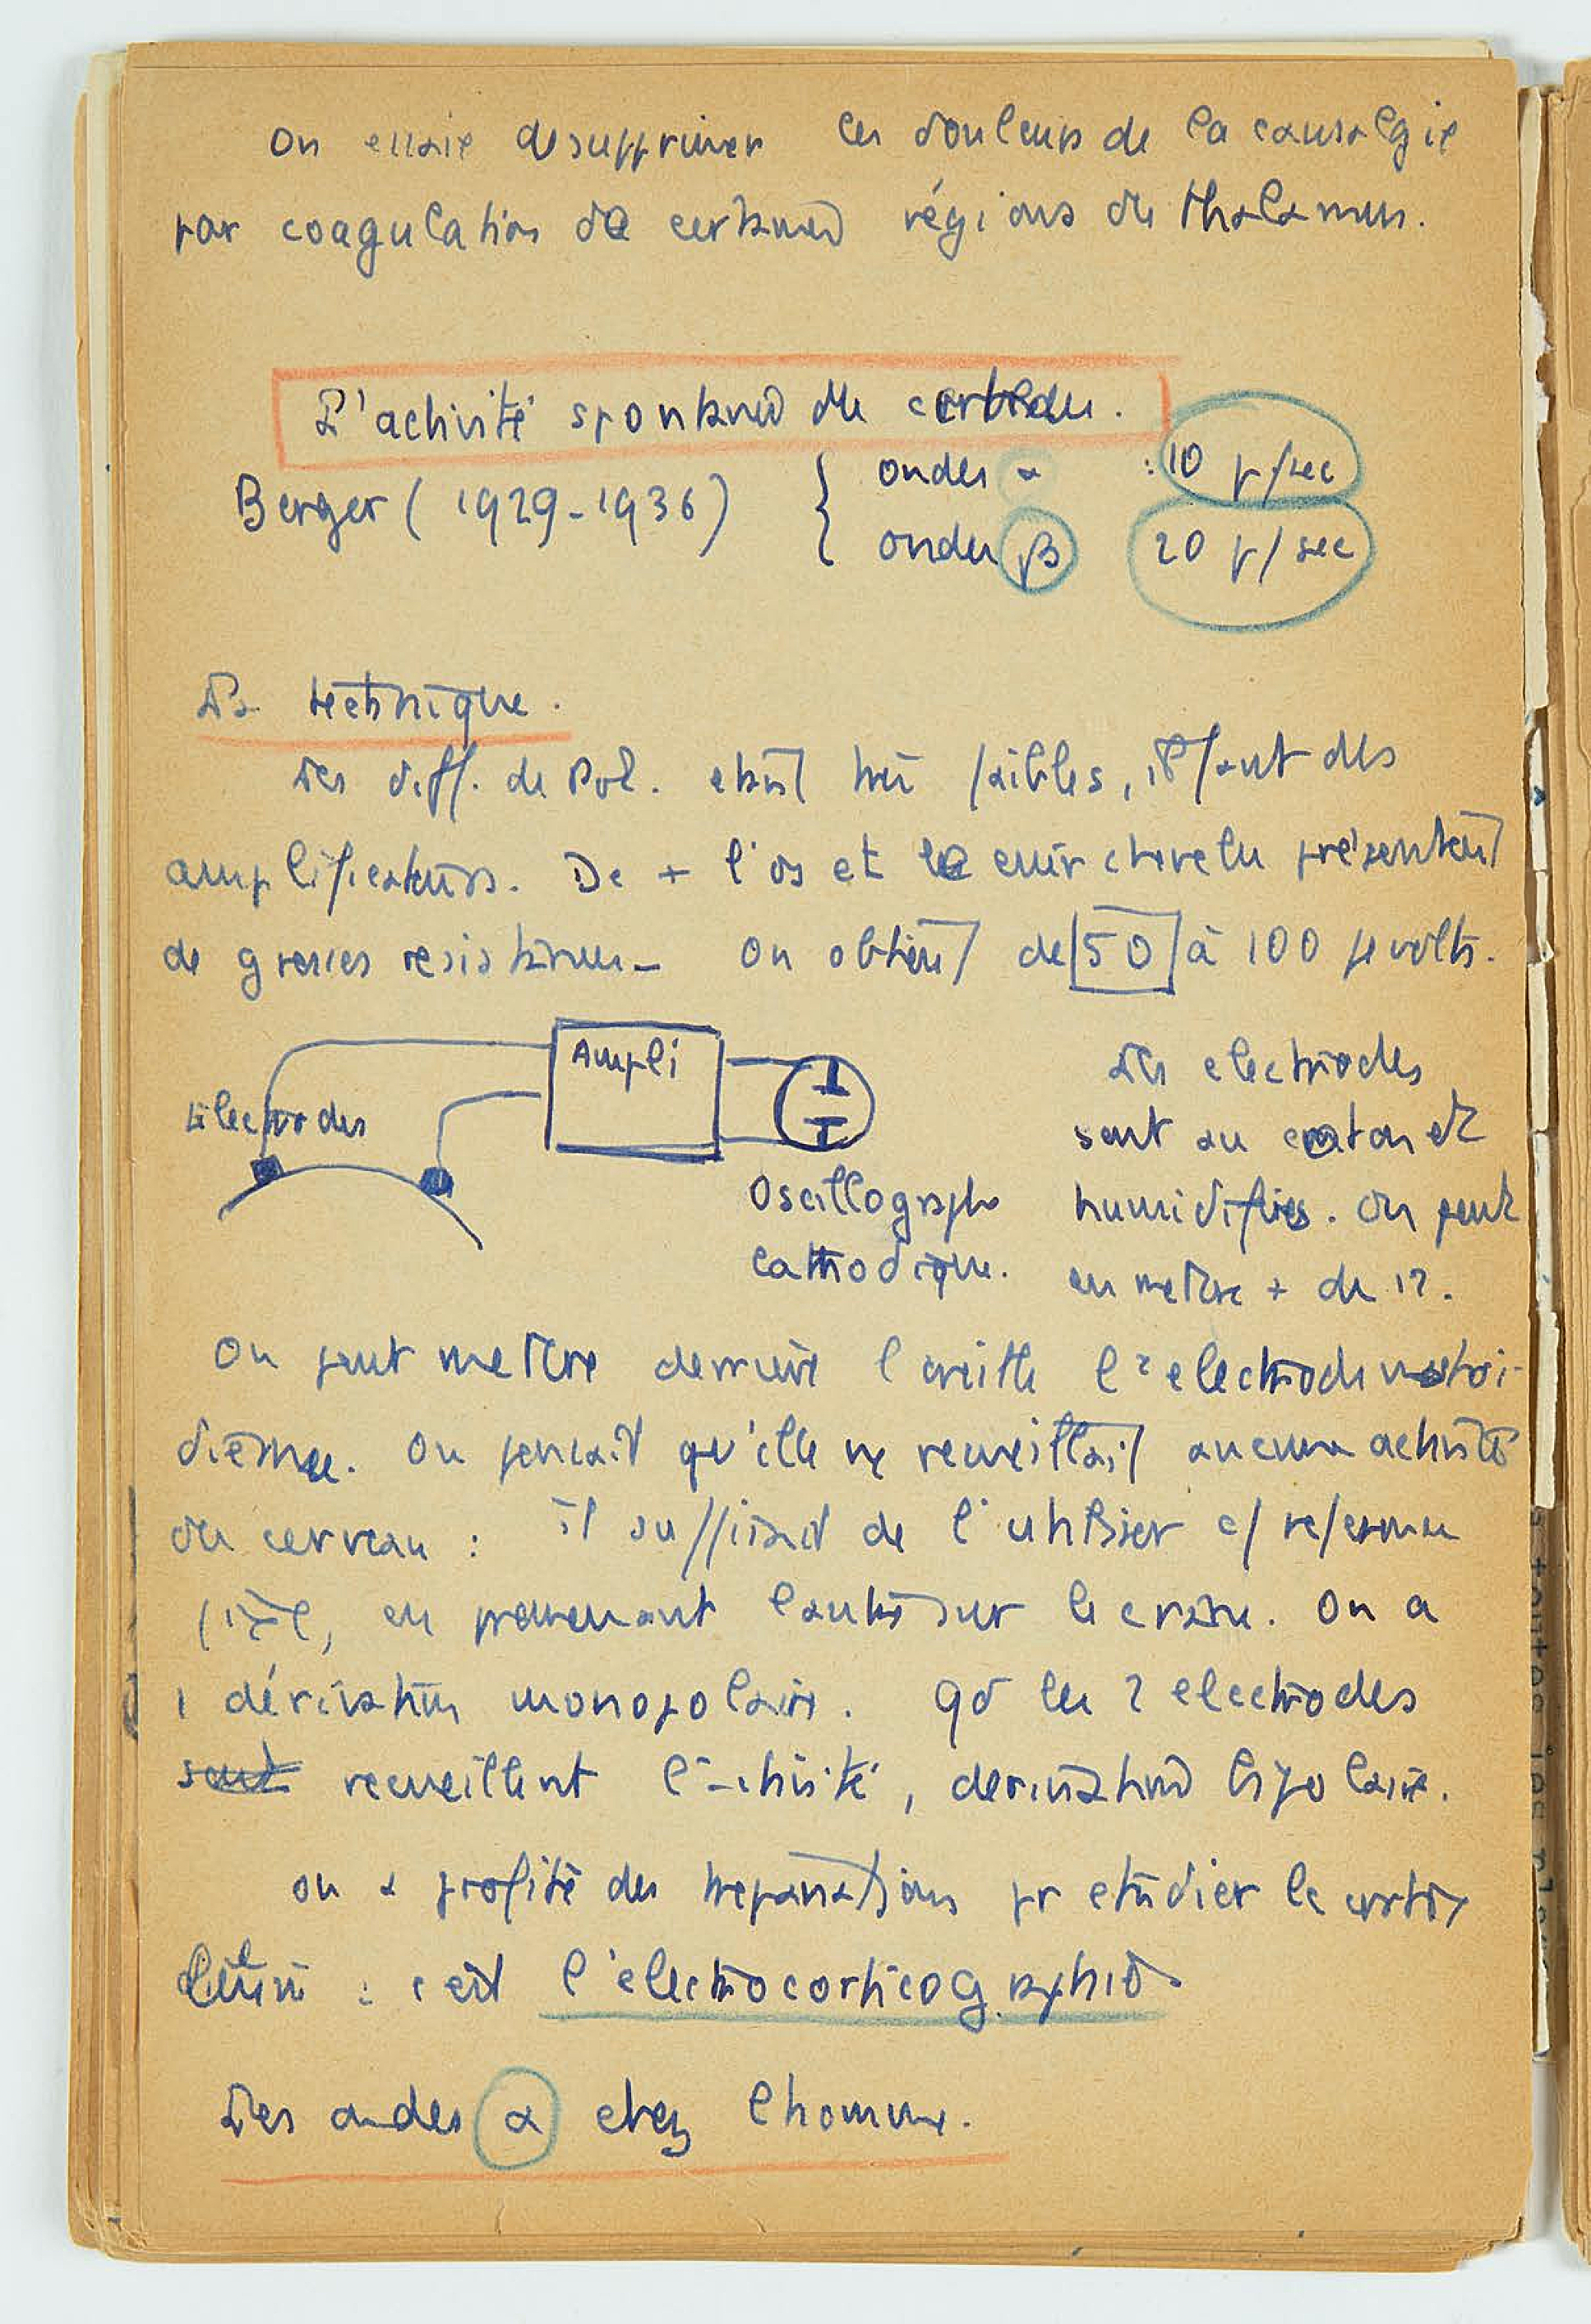 On essaie de supprimer les douleurs de la causalgie
par coagulation de certaines régions du thalamus.
L'activité spontanée du cerveau.
Berger (1929-1936) { ondes α : 10 p/sec
ondes β 20 p/sec
La technique.
Les diff. de Pot. etant très faibles, il faut des
amplificateurs. De + l'os et le cuir chevelu présentent
de grosses resistances - On obtient de 50 à 100 μvolts.
Ampli
Electrodes
Oscillographe
cathodique.
Les electrodes
sont au coton et
humidifiées. On peut
en mettre + de 12.
On peut mettre derrière l'oreille l'electrode mastoi-
dienne. On pensait qu'elle ne recueillait aucune activité
du cerveau : il suffisait de l'utiliser c/ reference
fixe, en promenant l'autre sur le crane. On a
1 dérivation monopolaire. qd les 2 electrodes
sont recueillent l'activité, derivation bipolaire.
On a profité des trepanations pr etudier le cortex
: c'est l'electrocorticographie
Les ondes α chez l'homme.